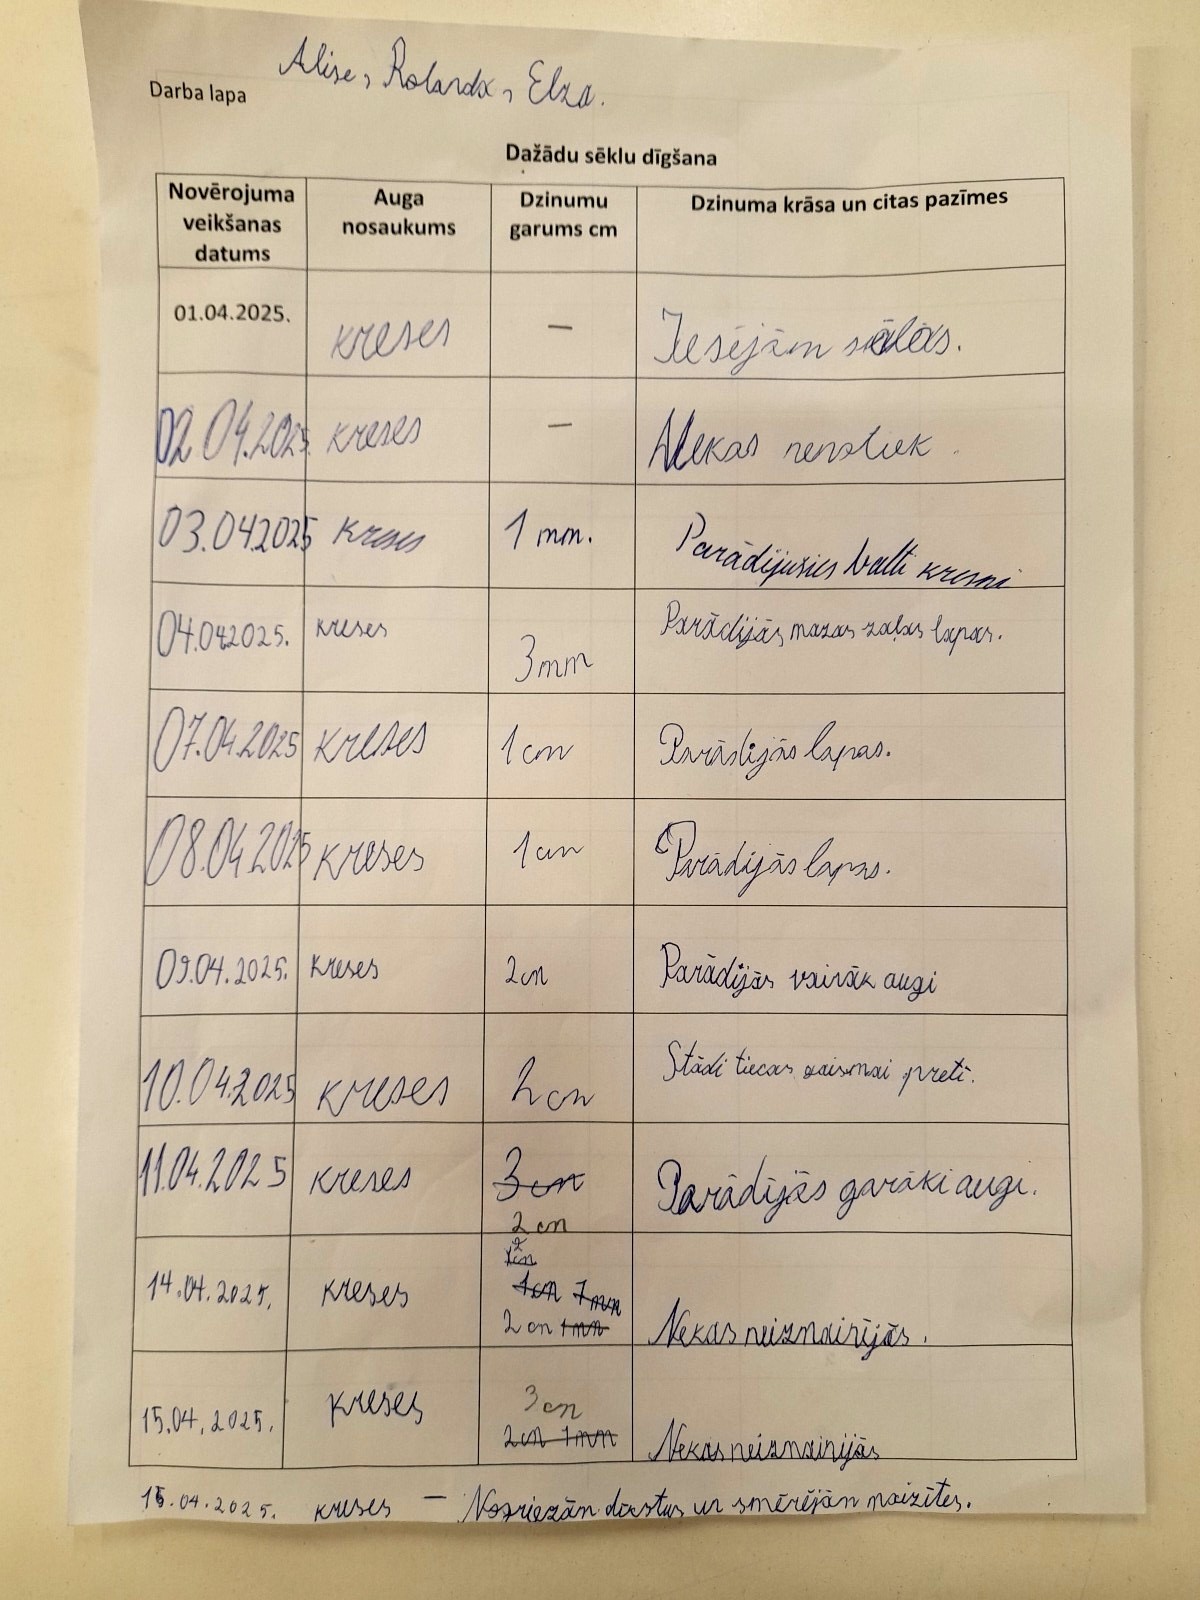 Alise, Rolands, Elza.
Darba lapa
Dažādu sēklu dīgšana
Novērojuma veikšanas datums Auga nosaukums Dzinumu garums cm Dzinuma krāsa un citas pazīmes
01.04.2025. kreses — Iesējām sēklas.
02.04.2025. kreses — Nekas nenotiek.
03.04.2025 kreses 1 mm. Parādījušies balti kresni
04.042025. kreses 3mm Parādījās mazas zaļas lapas.
07.04.2025 kreses 1cm Parādījās lapas.
08.04.2025 kreses 1cm Parādījās lapas.
09.04.2025. kreses 2cm Parādījās vairāk augi
10.04.2025 kreses 2cm Stādi tiecas gaismai pretī.
11.04.2025 kreses 3cm Parādījās garāki augi.
2 cm
14.04.2025. kreses 1cm 7mm
2 cm 1mm Nekas neizmainījās.
15.04.2025. kreses 3cm
2cm 1mm Nekas neizmainījās
15.04.2025. kreses — Nogriezām dīgstus un smērējām maizītes.